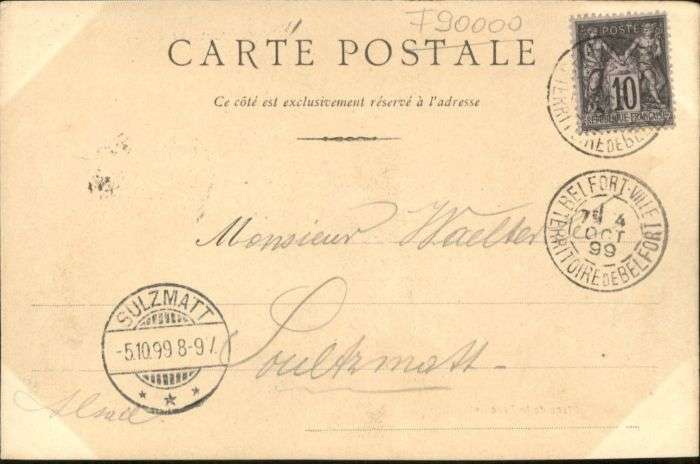 F90000
CARTE POSTALE
Ce côté est exclusivement réservé à l'adresse
POSTE
10
RÉPUBLIQUE FRANÇAISE
TERRITOIRE DE BELFORT
BELFORT-VILLE
7E 4
OCT
99
TERRITOIRE DE BELFORT
Monsieur Waelter
SULZMATT
-5.10.99 8-9V.
Soultzmatt
Alsace